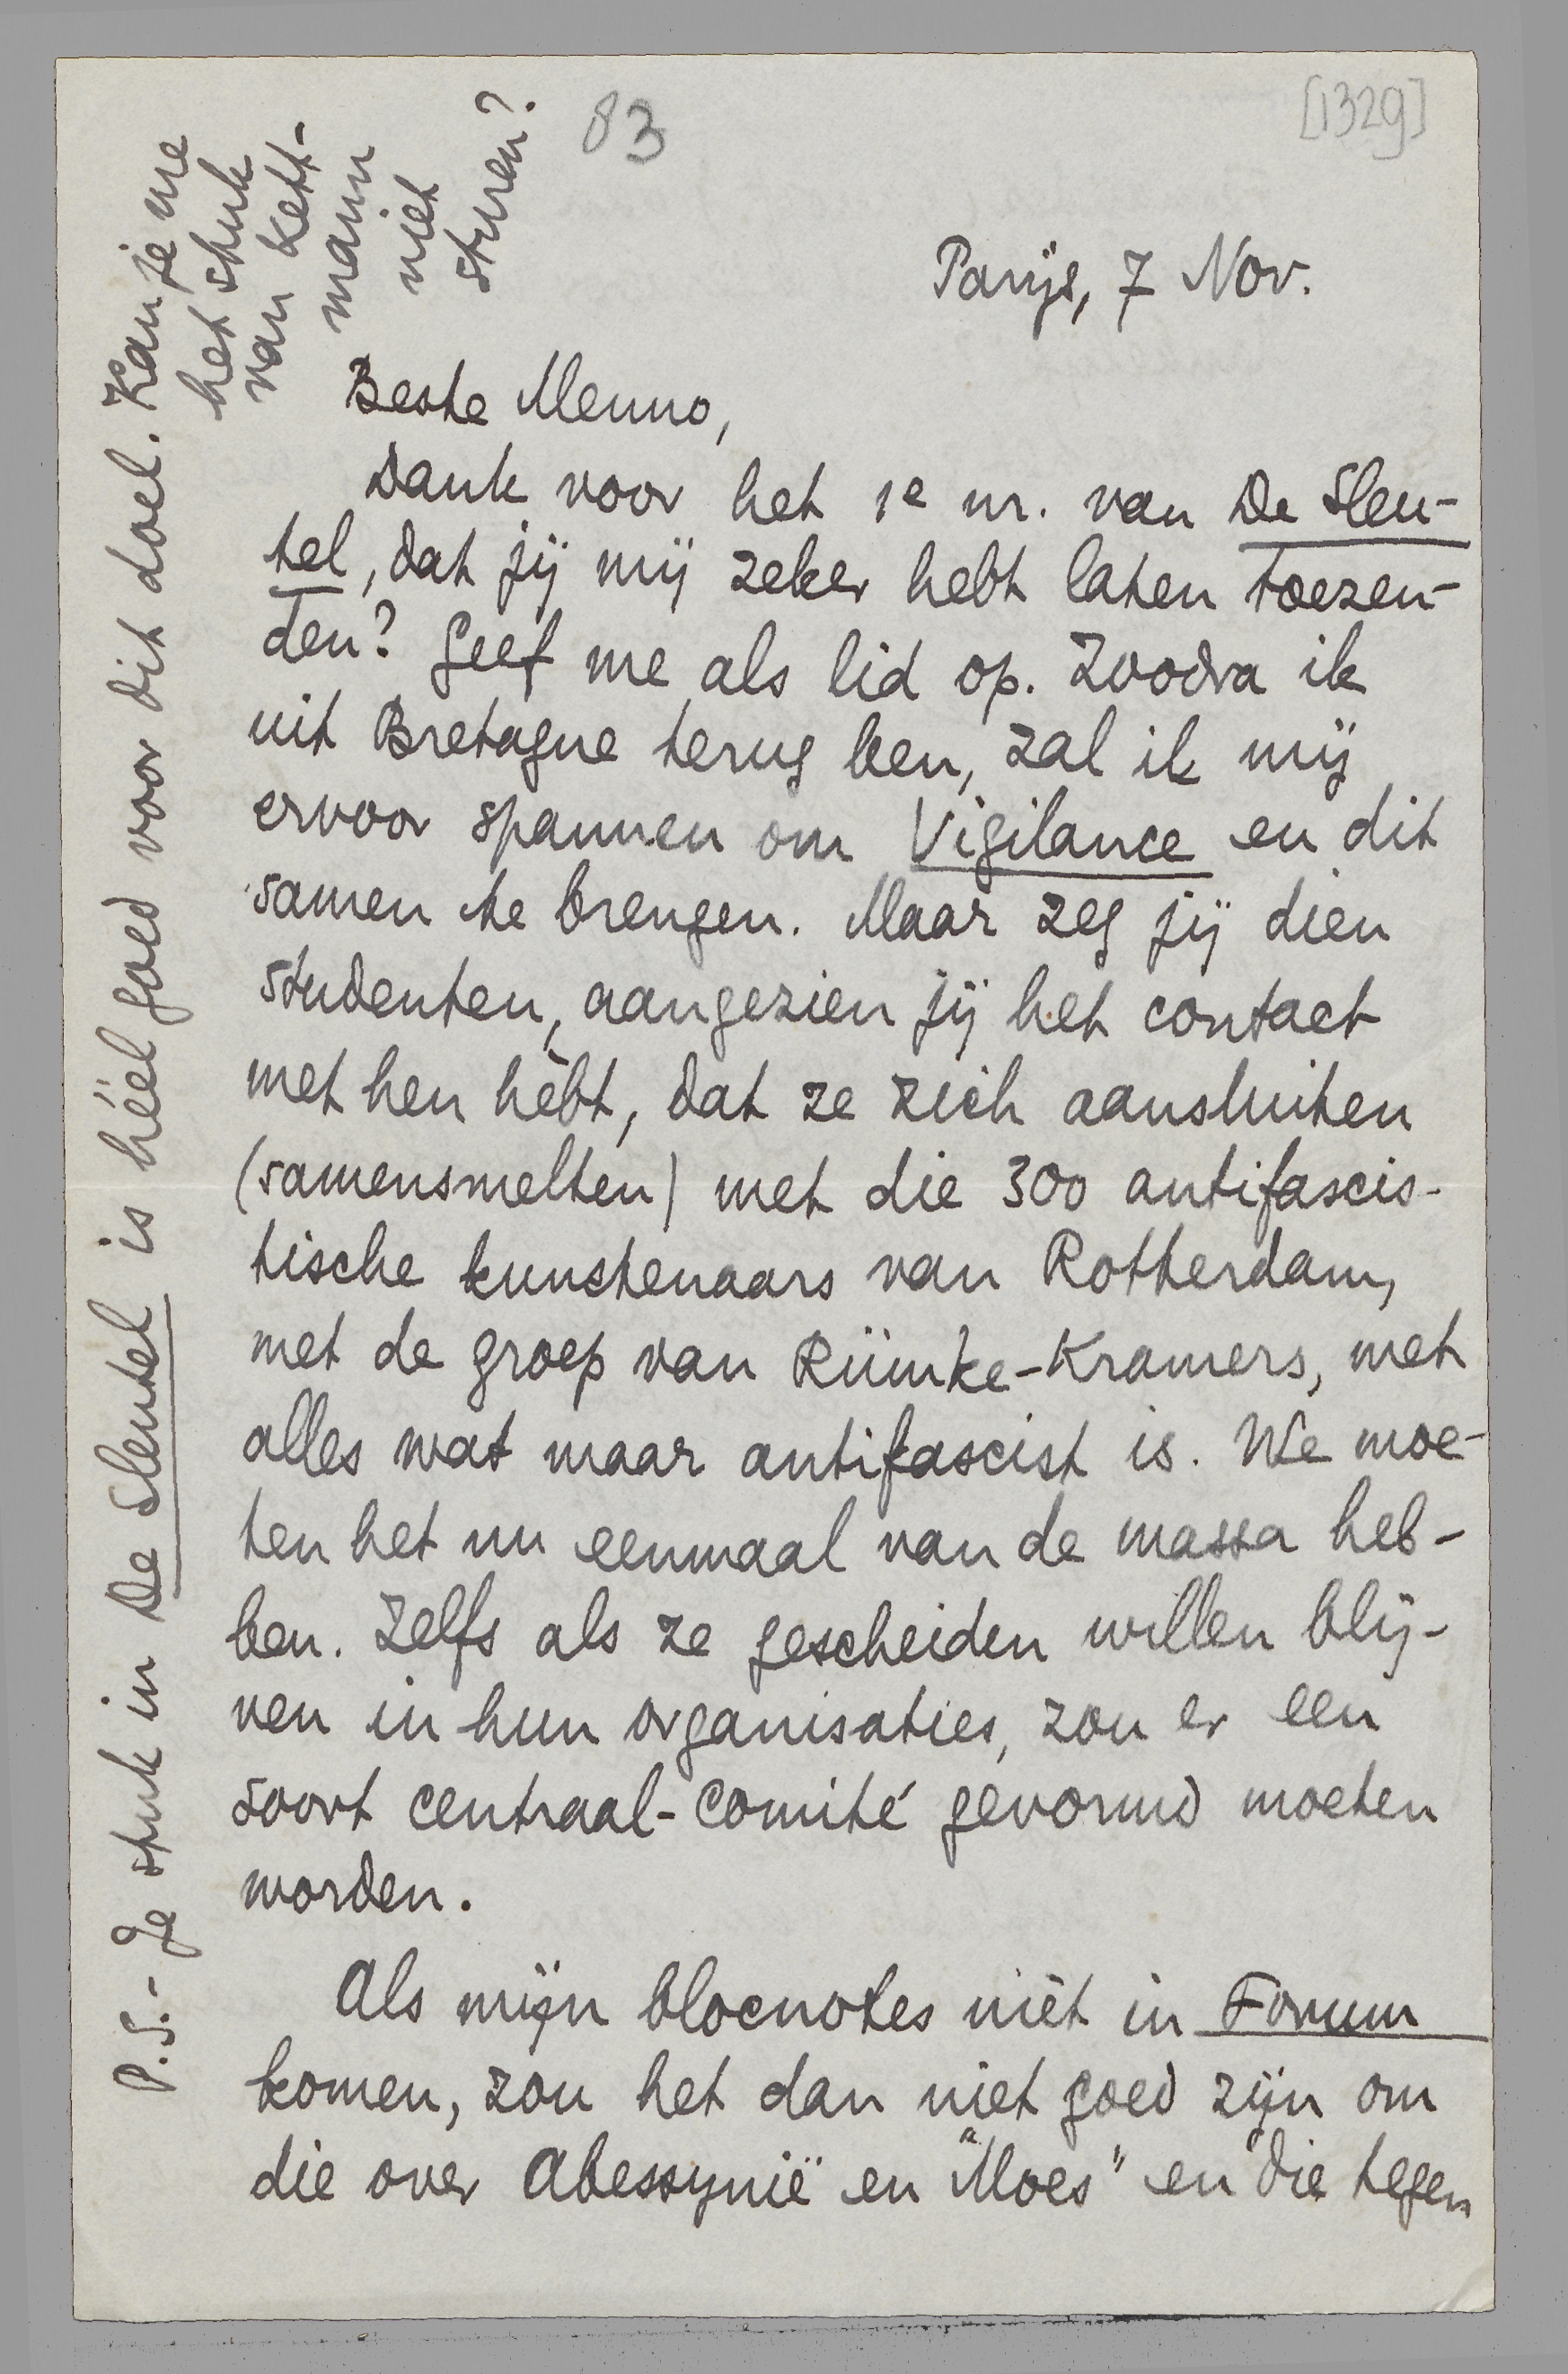 83
[1329]
Parijs, 7 Nov.
Beste Menno,
Dank voor het 1e nr. van De Sleu-
tel, dat jij mij zeker hebt laten toezen-
den? Geef me als lid op. Zoodra ik
uit Bretagne terug ben, zal ik mij
ervoor spannen om Vigilance en dit
samen te brengen. Maar zeg jij dien
studenten, aangezien jij het contact
met hen hèbt, dat ze zich aansluiten
(samensmelten) met die 300 antifascis-
tische kunstenaars van Rotterdam,
met de groep van Rümke-Kramers, met
alles wat maar antifascist is. We moe-
ten het nu eenmaal van de massa heb-
ben. Zelfs als ze gescheiden willen blij-
ven in hun organisaties, zou er een
soort centraal-comité gevormd moeten
worden.
Als mijn blocnotes nièt in Forum
komen, zou het dan niet goed zijn om
die over Abessynië en "Moes" en die tegen
P.S.- Je stuk in De Sleutel is héél goed voor dit doel. Kan je me
het stuk
van Kett-
mann
niet
sturen?